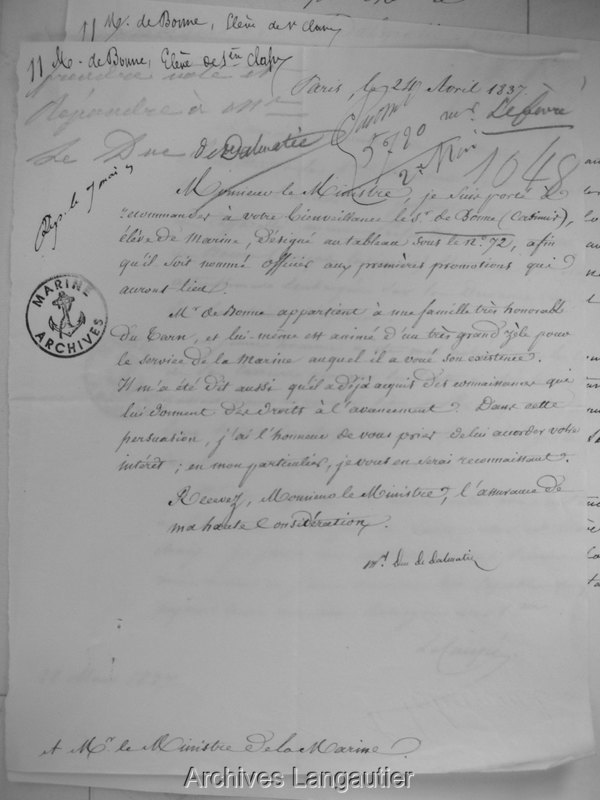 11 Mr. de Bonne, Elève de 1re Classe
11 M. de Bonne, Elève de 1re Classe
prendre note et
Répondre à Mr
Le Duc de Dalmatie
Paris, le 24 Avril 1837.
5790
Lefèvre
2 Mai
1048
Rép. le 7 mai
Monsieur le Ministre, je suis porté à
recommander à votre bienveillance le Sr. de Bonne (Casimir),
élève de Marine, désigné au tableau sous le No. 72, afin
qu'il soit nommé officier aux premières promotions qui
auront lieu.
MARINE
ARCHIVES
Mr. de Bonne appartient à une famille très honorable
du Tarn, et lui-même est animé d'un très grand zèle pour
le service de la Marine auquel il a voué son existence.
Il m'a été dit aussi qu'il a déjà acquis des connaissances qui
lui donnent des droits à l'avancement. Dans cette
persuation, j'ai l'honneur de vous prier de lui accorder votre
intérêt ; en mon particulier, je vous en serai reconnaissant.
Recevez, Monsieur le Ministre, l'assurance de
ma haute Considération.
Mal Duc de Dalmatie
A Mr. le Ministre de la Marine.
Archives Langautier